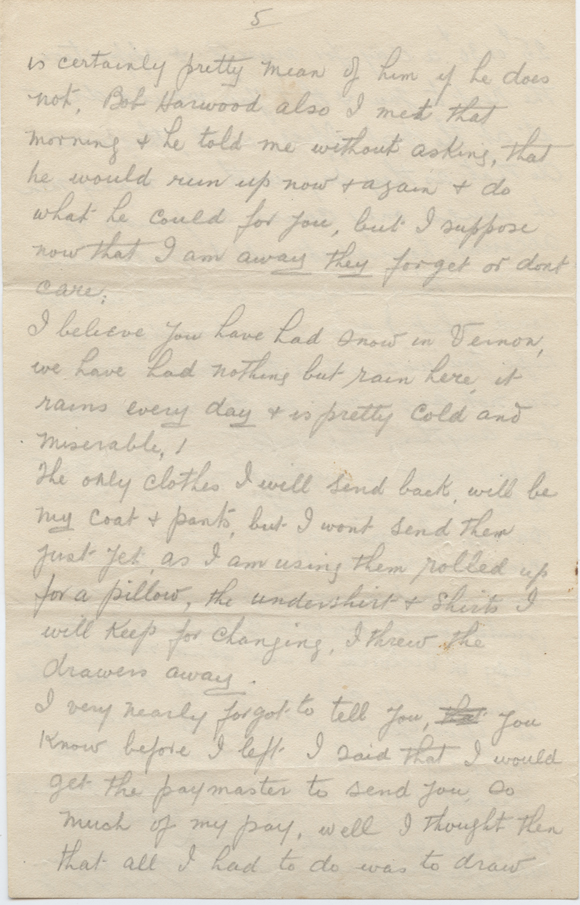 5
is certainly pretty mean of him if he does
not, Bob Harwood also I met that
morning & he told me without asking, that
he would run up now & again & do
what he could for you, but I suppose
now that I am away they forget or dont
care;
I believe you have had snow in Vernon,
we have had nothing but rain here, it
rains every day & is pretty cold and
miserable, !
The only clothes I will send back, will be
my coat & pants, but I wont send them
just yet, as I am using them rolled up
for a pillow, the undershirt & shirts I
will keep for changing, I threw the
drawers away.
I very nearly forgot to tell you, that you
know before I left I said that I would
get the paymaster to send you so
much of my pay, well I thought then
that all I had to do was to draw